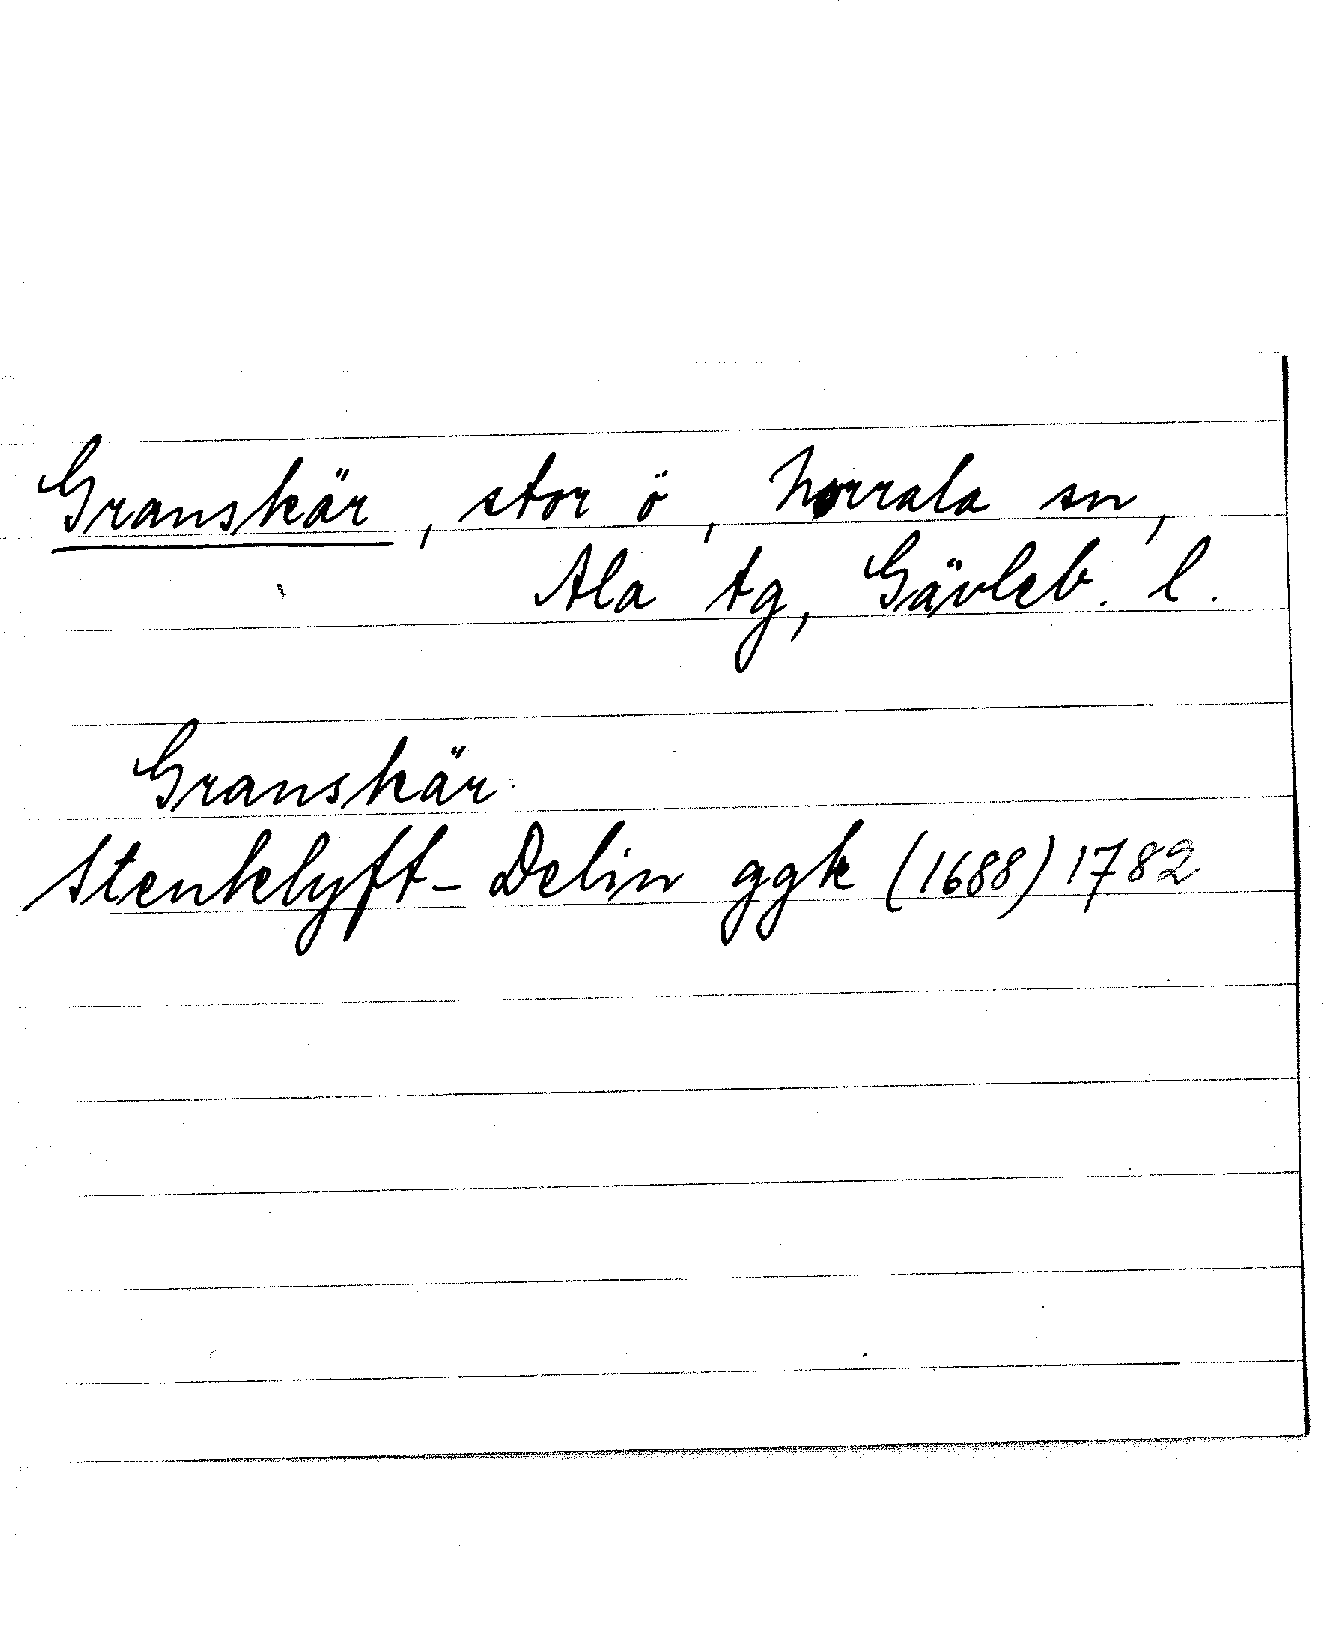 Granskär, stor ö, Norrala sn,
Ala tg, Gävleb. l.
Granskär
Stenklyft-Delin ggk (1688) 1782